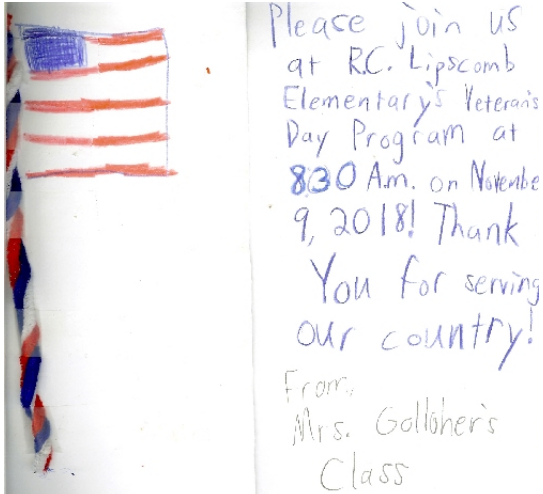 Please join us
at R.C. Lipscomb
Elementary's Veteran's
Day Program at
8:30 A.m. on Novembe
9, 2018! Thank
You for serving
our country!
From,
Mrs. Golloher's
Class